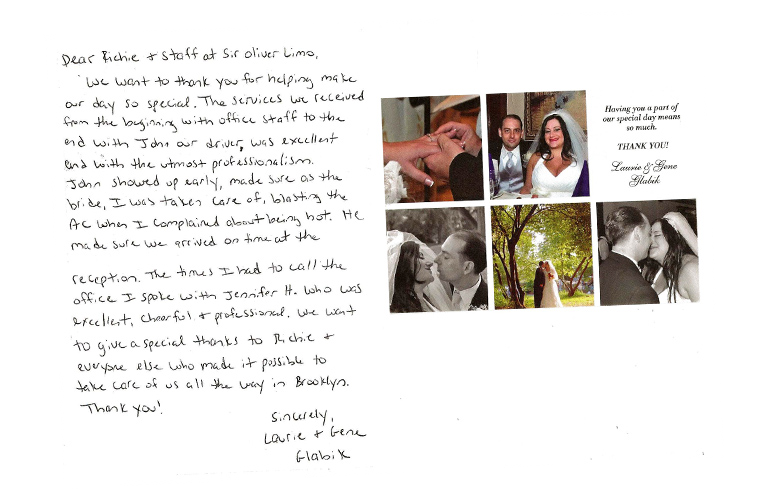 Dear Richie + Staff at Sir Oliver Limo,
We want to thank you for helping make
our day so special. The services we received
from the beginning with office staff to the
end with John our driver, was excellent
and with the utmost professionalism.
John showed up early, made sure as the
bride, I was taken care of, blasting the
AC when I complained about being hot. He
made sure we arrived on time at the
reception. The times I had to call the
office I spoke with Jennifer H. who was
excellent, cheerful + professional. We want
to give a special thanks to Richie +
everyone else who made it possible to
take care of us all the way in Brooklyn.
Thank you!
Sincerely,
Laurie + Gene
Glabik
Having you a part of
our special day means
so much.
THANK YOU!
Laurie & Gene
Glabik